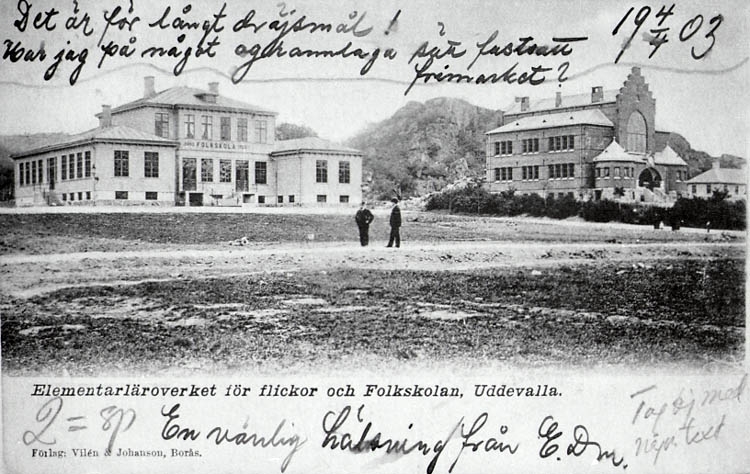 Det är för långt dräjsmål!
Har jag på något
fastsatt
frimärket?
19 4/4 03
FOLKSKOLA
Elementarläroverket för flickor och Folkskolan, Uddevalla.
En vänlig hälsning från E. Dm.
Förlag: Vilén & Johanson, Borås.